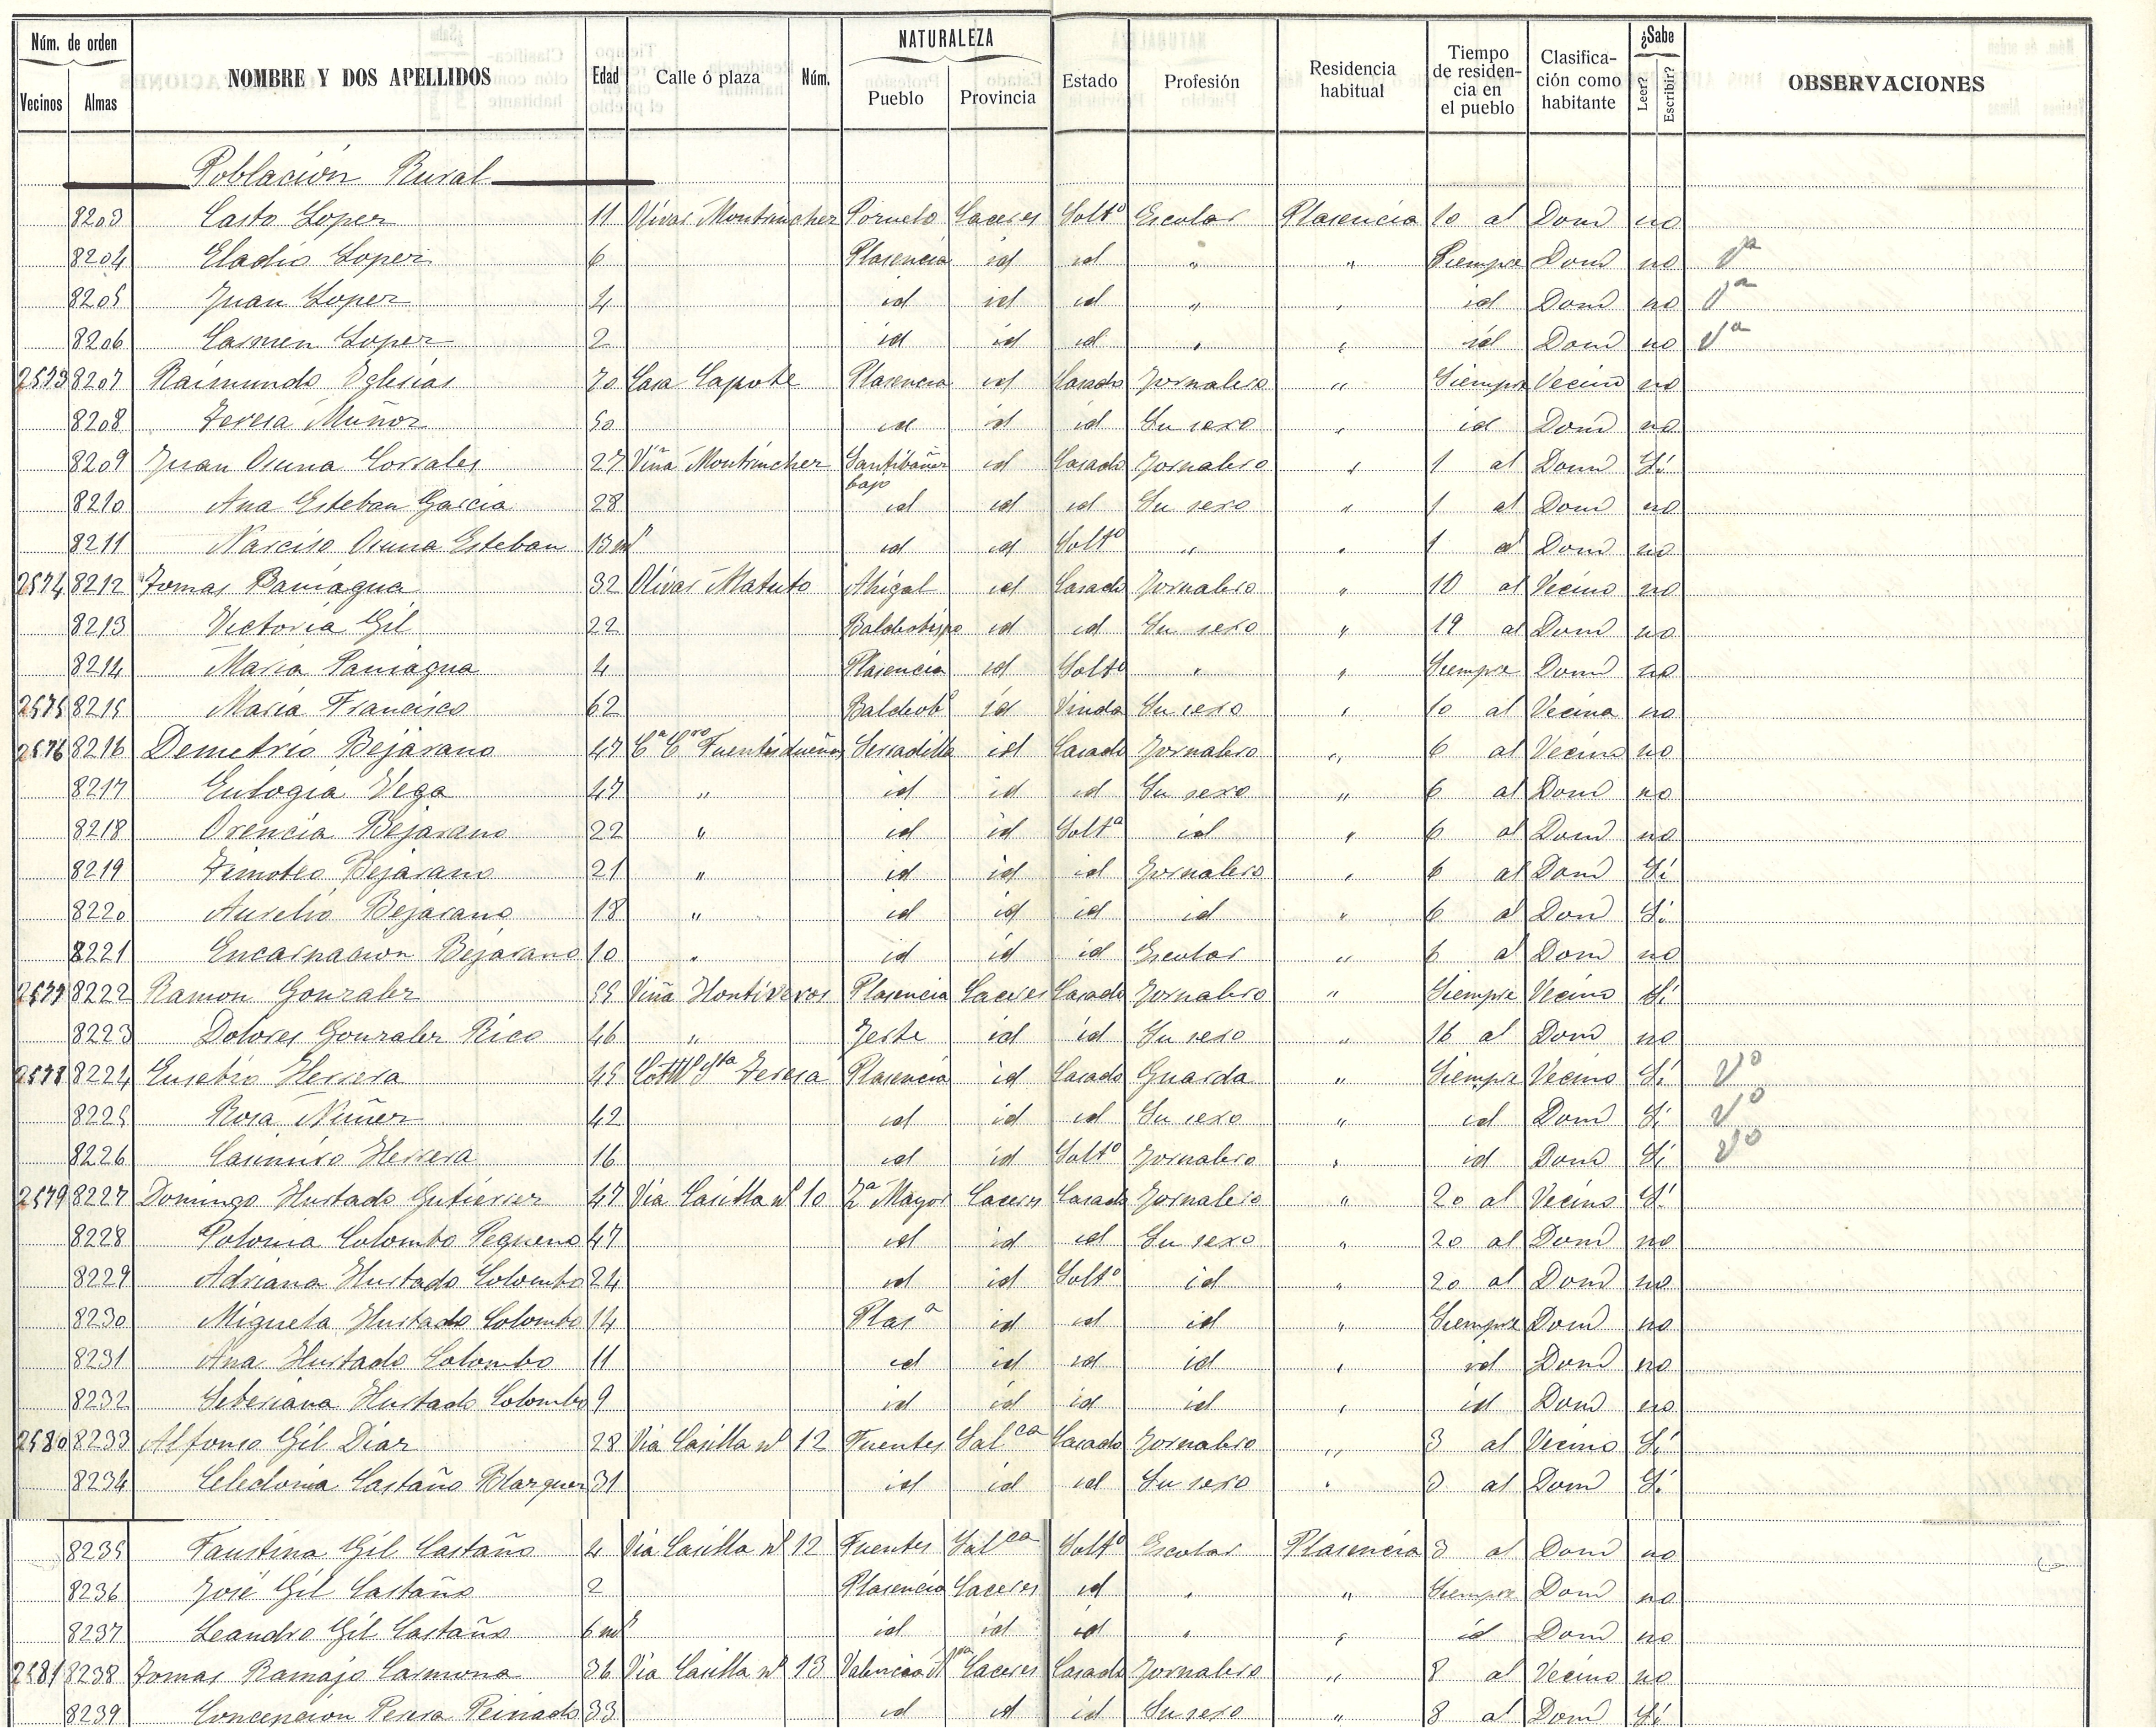 Núm. de orden NOMBRE Y DOS APELLIDOS Edad Calle ó plaza Núm. NATURALEZA Estado Profesión Residencia habitual Tiempo de residencia en el pueblo Clasificación como habitante ¿Sabe OBSERVACIONES
Vecinos Almas Pueblo Provincia Leer? Escribir?
Población Rural
8203 Casto Lopez 11 Olivar Montrincher Pornelo Caceres Soltº Escolar Plasencia 10 al Domd no
8204 Eladio Lopez 6 Plasencia id id " " Siempre Domd no Vª
8205 Juan Lopez 4 id id id " " id Domd no Vª
8206 Carmen Lopez 2 id id id " " id Domd no Vª
2573 8207 Raimundo Yglesias 70 Casa Capote Plasencia id Casado Jornalero " Siempre Vecino no
8208 Teresa Muñoz 50 id id id Su sexo " id Domd no
8209 Juan Osuna Corrales 27 Viña Montrincher Santibañez bajo id Casado Jornalero " 1 al Domd Sí
8210 Ana Esteban Garcia 28 id id id Su sexo " 1 al Domd no
8211 Narciso Osuna Esteban 13 ms id id Soltº " " 1 al Domd no
2574 8212 Tomas Paniagua 32 Olivar Matuto Ahigal id Casado Jornalero " 10 al Vecino no
8213 Victoria Gil 22 Baldeobispo id id Su sexo " 19 al Domd no
8214 Maria Paniagua 4 Plasencia id Soltª " " Siempre Domd no
2575 8215 Maria Francisco 62 Baldeobº id Viuda Su sexo " 10 al Vecina no
2576 8216 Demetrio Bejarano 47 Cª Cro Fuentidueñas Serradilla id Casado Jornalero " 6 al Vecino no
8217 Eulogia Vega 47 " id id id Su sexo " 6 al Domd no
8218 Orencia Bejarano 22 " id id Soltª id " 6 al Domd no
8219 Timoteo Bejarano 21 " id id id Jornalero " 6 al Domd Sí
8220 Aurelio Bejarano 18 " id id id id " 6 al Domd Sí
8221 Encarnacion Bejarano 10 " id id id Escolar " 6 al Domd no
2577 8222 Ramon Gonzalez 55 Viña Hontiveros Plasencia Caceres Casado Jornalero " Siempre Vecino Sí
8223 Dolores Gonzalez Rico 46 " Jerte id id Su sexo " 16 al Domd no
2578 8224 Eusebio Herrera 45 Sta Teresa Plasencia id Casado Guarda " Siempre Vecino Sí Vº
8225 Rosa Nuñez 42 id id id Su sexo " id Domd Sí Vº
8226 Casimiro Herrera 16 id id Soltº Jornalero " id Domd Sí Vº
2579 8227 Domingo Hurtado Gutierrez 47 Via Casilla nº 10 Zª Mayor Caceres Casado Jornalero " 20 al Vecino Sí
8228 Polonia Colombo Pequeno 47 id id id Su sexo " 20 al Domd no
8229 Adriana Hurtado Colombo 24 id id Soltº id " 20 al Domd no
8230 Miguela Hurtado Colombo 14 Plasª id id id " Siempre Domd no
8231 Ana Hurtado Colombo 11 id id id id " id Domd no
8232 Seberiana Hurtado Colombo 9 id id id id " id Domd no
2580 8233 Alfonso Gil Diaz 28 Via Casilla nº 12 Fuentes Salca Casado Jornalero " 3 al Vecino Sí
8234 Celedonia Castaño Blazquez 31 id id id Su sexo " 3 al Domd Sí
8235 Faustina Gil Castaño 4 Via Casilla nº 12 Fuentes Salca Soltº Escolar Plasencia 3 al Domd no
8236 José Gil Castaño 2 Plasencia Caceres id " " Siempre Domd no
8237 Leandro Gil Castaño 6 ms id id id " " id Domd no
2581 8238 Tomas Ramajo Carmona 36 Via Casilla nº 13 Valencia Caceres Casado Jornalero " 8 al Vecino no
8239 Concepcion Perera Peinado 33 id id id Su sexo " 8 al Domd Sí